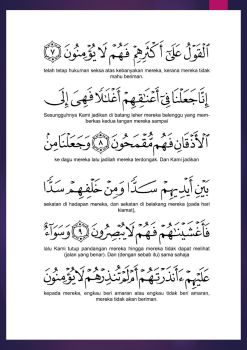 الْقَوْلُ عَلَىٰٓ أَكْثَرِهِمْ فَهُمْ لَا يُؤْمِنُونَ ٧
telah tetap hukuman seksa atas kebanyakan mereka, kerana mereka tidak
mahu beriman.
إِنَّا جَعَلْنَا فِىٓ أَعْنَٰقِهِمْ أَغْلَٰلًا فَهِىَ إِلَى
Sesungguhnya Kami jadikan di batang leher mereka belenggu yang mem-
berkas kedua tangan mereka sampai
الْأَذْقَانِ فَهُم مُّقْمَحُونَ ٨ وَجَعَلْنَا مِنۢ
ke dagu mereka lalu jadilah mereka terdongak. Dan Kami jadikan
بَيْنِ أَيْدِيهِمْ سَدًّا وَمِنْ خَلْفِهِمْ سَدًّا
sekatan di hadapan mereka, dan sekatan di belakang mereka (pada hari
kiamat),
فَأَغْشَيْنَٰهُمْ فَهُمْ لَا يُبْصِرُونَ ٩ وَسَوَآءٌ
lalu Kami tutup pandangan mereka hingga mereka tidak dapat melihat
(jalan yang benar). Dan (dengan sebab itu) sama sahaja
عَلَيْهِمْ ءَأَنذَرْتَهُمْ أَمْ لَمْ تُنذِرْهُمْ لَا يُؤْمِنُونَ
kepada mereka, engkau beri amaran atau engkau tidak beri amaran,
mereka tidak akan beriman.